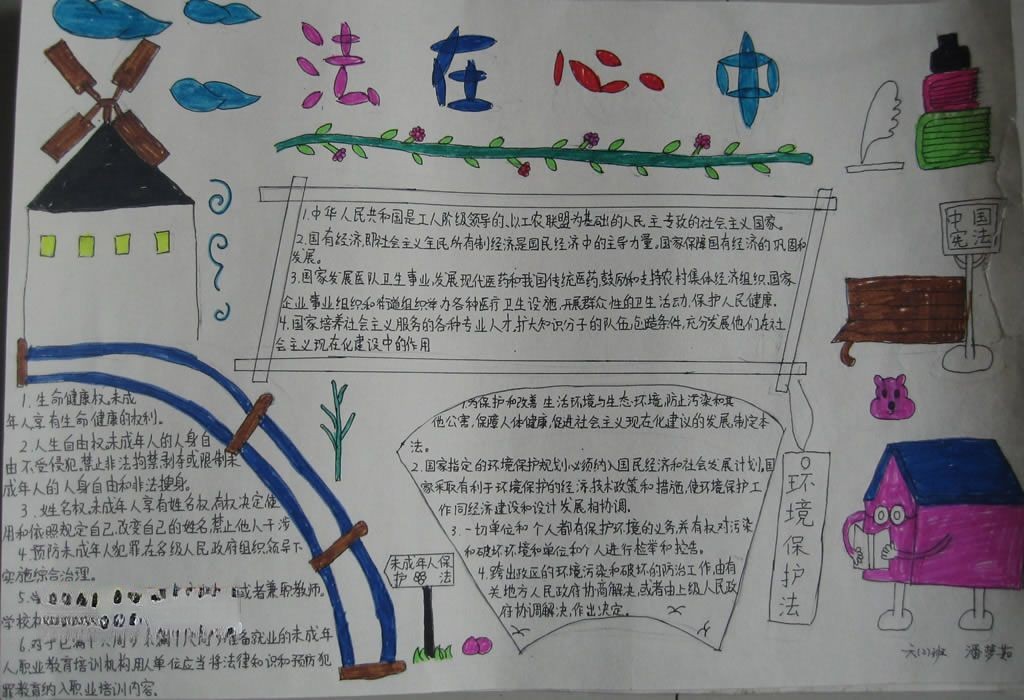 法在心中
1.中华人民共和国是工人阶级领导的、以工农联盟为基础的人民主专政的社会主义国家。
2.国有经济,即社会主义全民所有制经济是国民经济中的主导力量。国家保障国有经济的巩固和
发展。
3.国家发展医疗卫生事业,发展现代医药和我国传统医药,鼓励和支持农村集体经济组织、国家
企业事业组织和街道组织举办各种医疗卫生设施,开展群众性的卫生活动,保护人民健康。
4.国家培养社会主义服务的各种专业人才,扩大知识分子的队伍,创造条件,充分发展他们在社
会主义现在化建设中的作用
中国
宪法
1.生命健康权。未成
年人享有生命健康的权利。
2.人生自由权。未成年人的人身自
由不受侵犯。禁止非法拘禁、剥夺或限制未
成年人的人身自由和非法搜身。
3.姓名权。未成年人享有姓名权,有权决定使
用和依照规定自己,改变自己的姓名,禁止他人干涉
4.预防未成年人犯罪,在各级人民政府组织领导下
实施综合治理。
5.
或者兼职教师。
学校
6.对于已满十六周岁不满十八周岁准备就业的未成年
人,职业教育培训机构,用人单位应当将法律知识和预防犯
罪教育纳入职业培训内容。
未成年人保
护法
1.为保护和改善生活环境与生态环境,防止污染和其
他公害,保障人体健康,促进社会主义现在化建议的发展,制定本
法。
2.国家指定的环境保护规划必须纳入国民经济和社会发展计划,国
家采取有利于环境保护的经济、技术政策和措施,使环境保护工
作同经济建设和设计发展相协调.
3.一切单位和个人都有保护环境的义务,并有权对污染
和破坏环境和单位和个人进行检举和控告。
4.跨出政区的环境污染和破坏的防治工作,由有
关地方人民政府协商解决,或者由上级人民政
府协调解决,作出决定。
环境保护法
六(2)班 潘梦茹